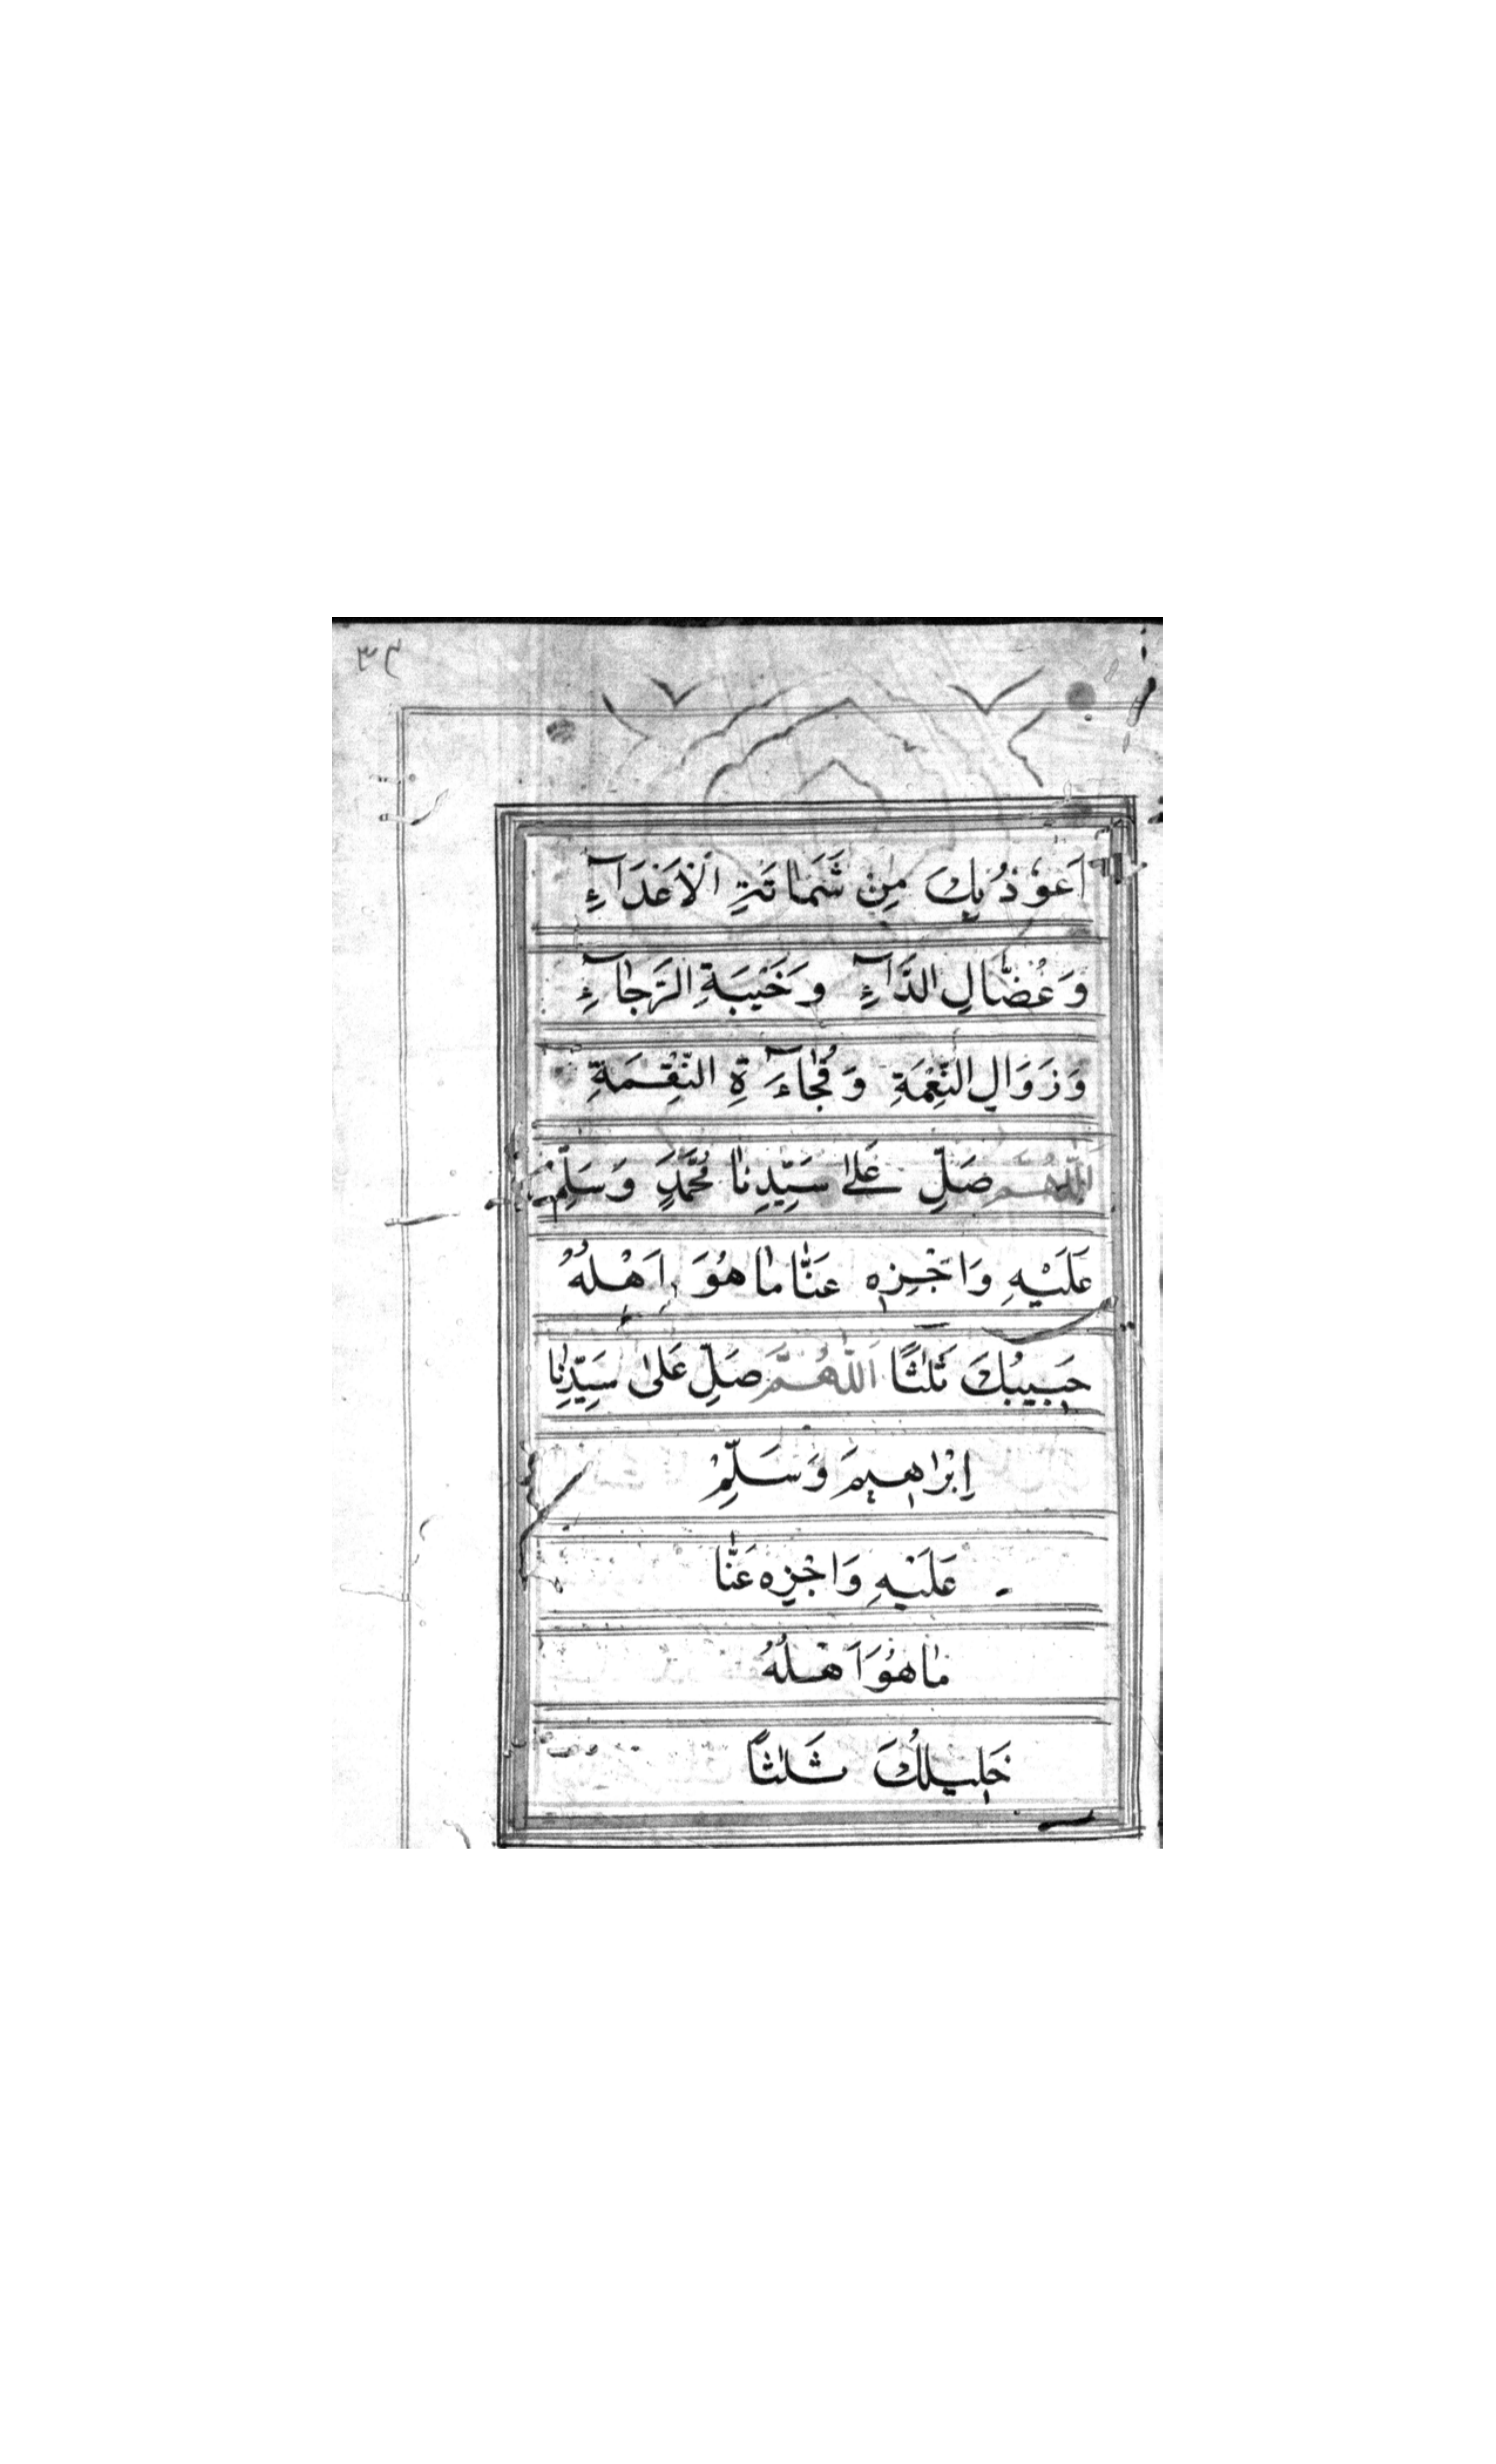 ٣٢
اَعُوْذُ بِكَ مِنْ شَمَاتَةِ الْاَعْدَآءِ
وَعُضَّالِ الدَّآءِ وَخَيْبَةِ الرَّجَآءِ
وَزَوَالِ النِّعْمَةِ وَفُجَآءَةِ النِّقْمَةِ
اَللّٰهُمَّ صَلِّ عَلٰى سَيِّدِنَا مُحَمَّدٍ وَسَلِّمْ
عَلَيْهِ وَاجْزِهِ عَنَّا مَا هُوَ اَهْلُهُ
حَبِيبُكَ ثَلٰثًا اَللّٰهُمَّ صَلِّ عَلٰى سَيِّدِنَا
اِبْرَاهِيمَ وَسَلِّمْ
عَلَيْهِ وَاجْزِهِ عَنَّا
مَا هُوَ اَهْلُهُ
خَلِيلُكَ ثَلٰثًا